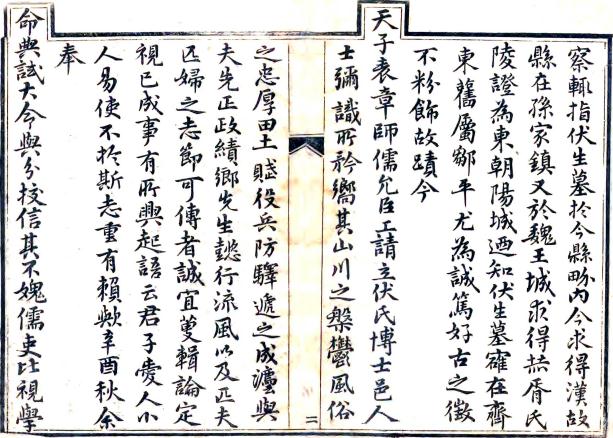 察輒指伏生墓扵今縣畍內今求得漢故
縣在孫家鎮又於魏王城求得赫胥氏
陵證為東朝陽城迺知伏生墓確在齊
東舊屬鄒平尤為誠篤好古之徵
不粉飾故蹟今
天子表章師儒允臣工請立伏氏博士邑人
士彌識所矜嚮其山川之槃鬱風俗
二
之忠厚田土賦役兵防驛遞之成灋與
夫先正政績鄉先生懿行流風以及匹夫
匹婦之志節可傳者誠宜蒐輯論定
視已成事有所興起語云君子愛人小
人易使不扵斯志重有賴歟辛酉秋余
奉
命典試大令與分校信其不媿儒吏比視學